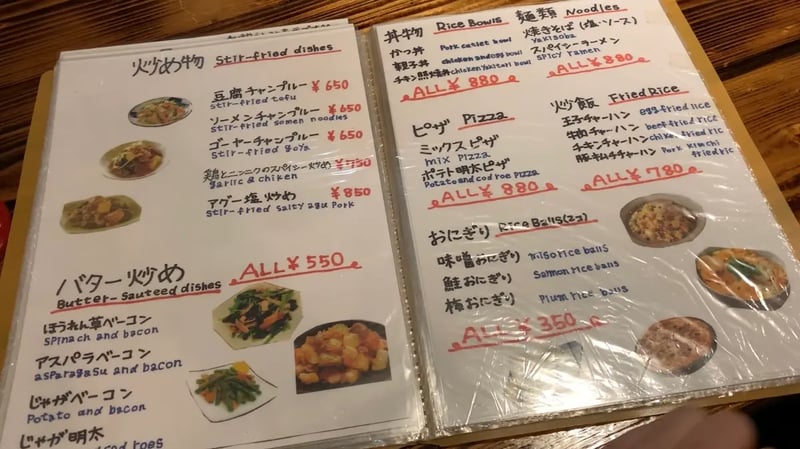 炒め物 Stir-fried dishes
豆腐チャンプルー ¥650
Stir-fried tofu
ソーメンチャンプルー ¥650
Stir-fried somen noodles
ゴーヤーチャンプルー ¥650
Stir-fried goya
鶏とニンニクのスパイシー炒め ¥750
garlic & chiken
アグー塩炒め ¥850
Stir-fried salty agu Pork
バター炒め ALL¥550
Butter-Sauteed dishes
ほうれん草ベーコン
Spinach and bacon
アスパラベーコン
asparagasu and bacon
じゃがベーコン
Potato and bacon
じゃが明太
roes
丼物 Rice Bowls
かつ丼 Pork cutlet bowl
親子丼 chicken and egg bowl
チキン照焼丼 chicken yakitori bowl
ALL¥880
麺類 Noodles
焼きそば(塩・ソース)
yakisoba
スパイシーラーメン
spicy ramen
ALL¥880
ピザ Pizza
ミックスピザ
mix pizza
ポテト明太ピザ
Potato and cod roe pizza
ALL¥880
炒飯 Fried Rice
玉子チャーハン egg fried rice
牛肉チャーハン beef fried rice
チキンチャーハン chiken fried ric
豚キムチチャーハン Pork kimchi
fried ric
ALL¥780
おにぎり Rice Balls(2コ)
味噌おにぎり miso rice balls
鮭おにぎり Salmon rice balls
梅おにぎり Plum rice balls
ALL¥350